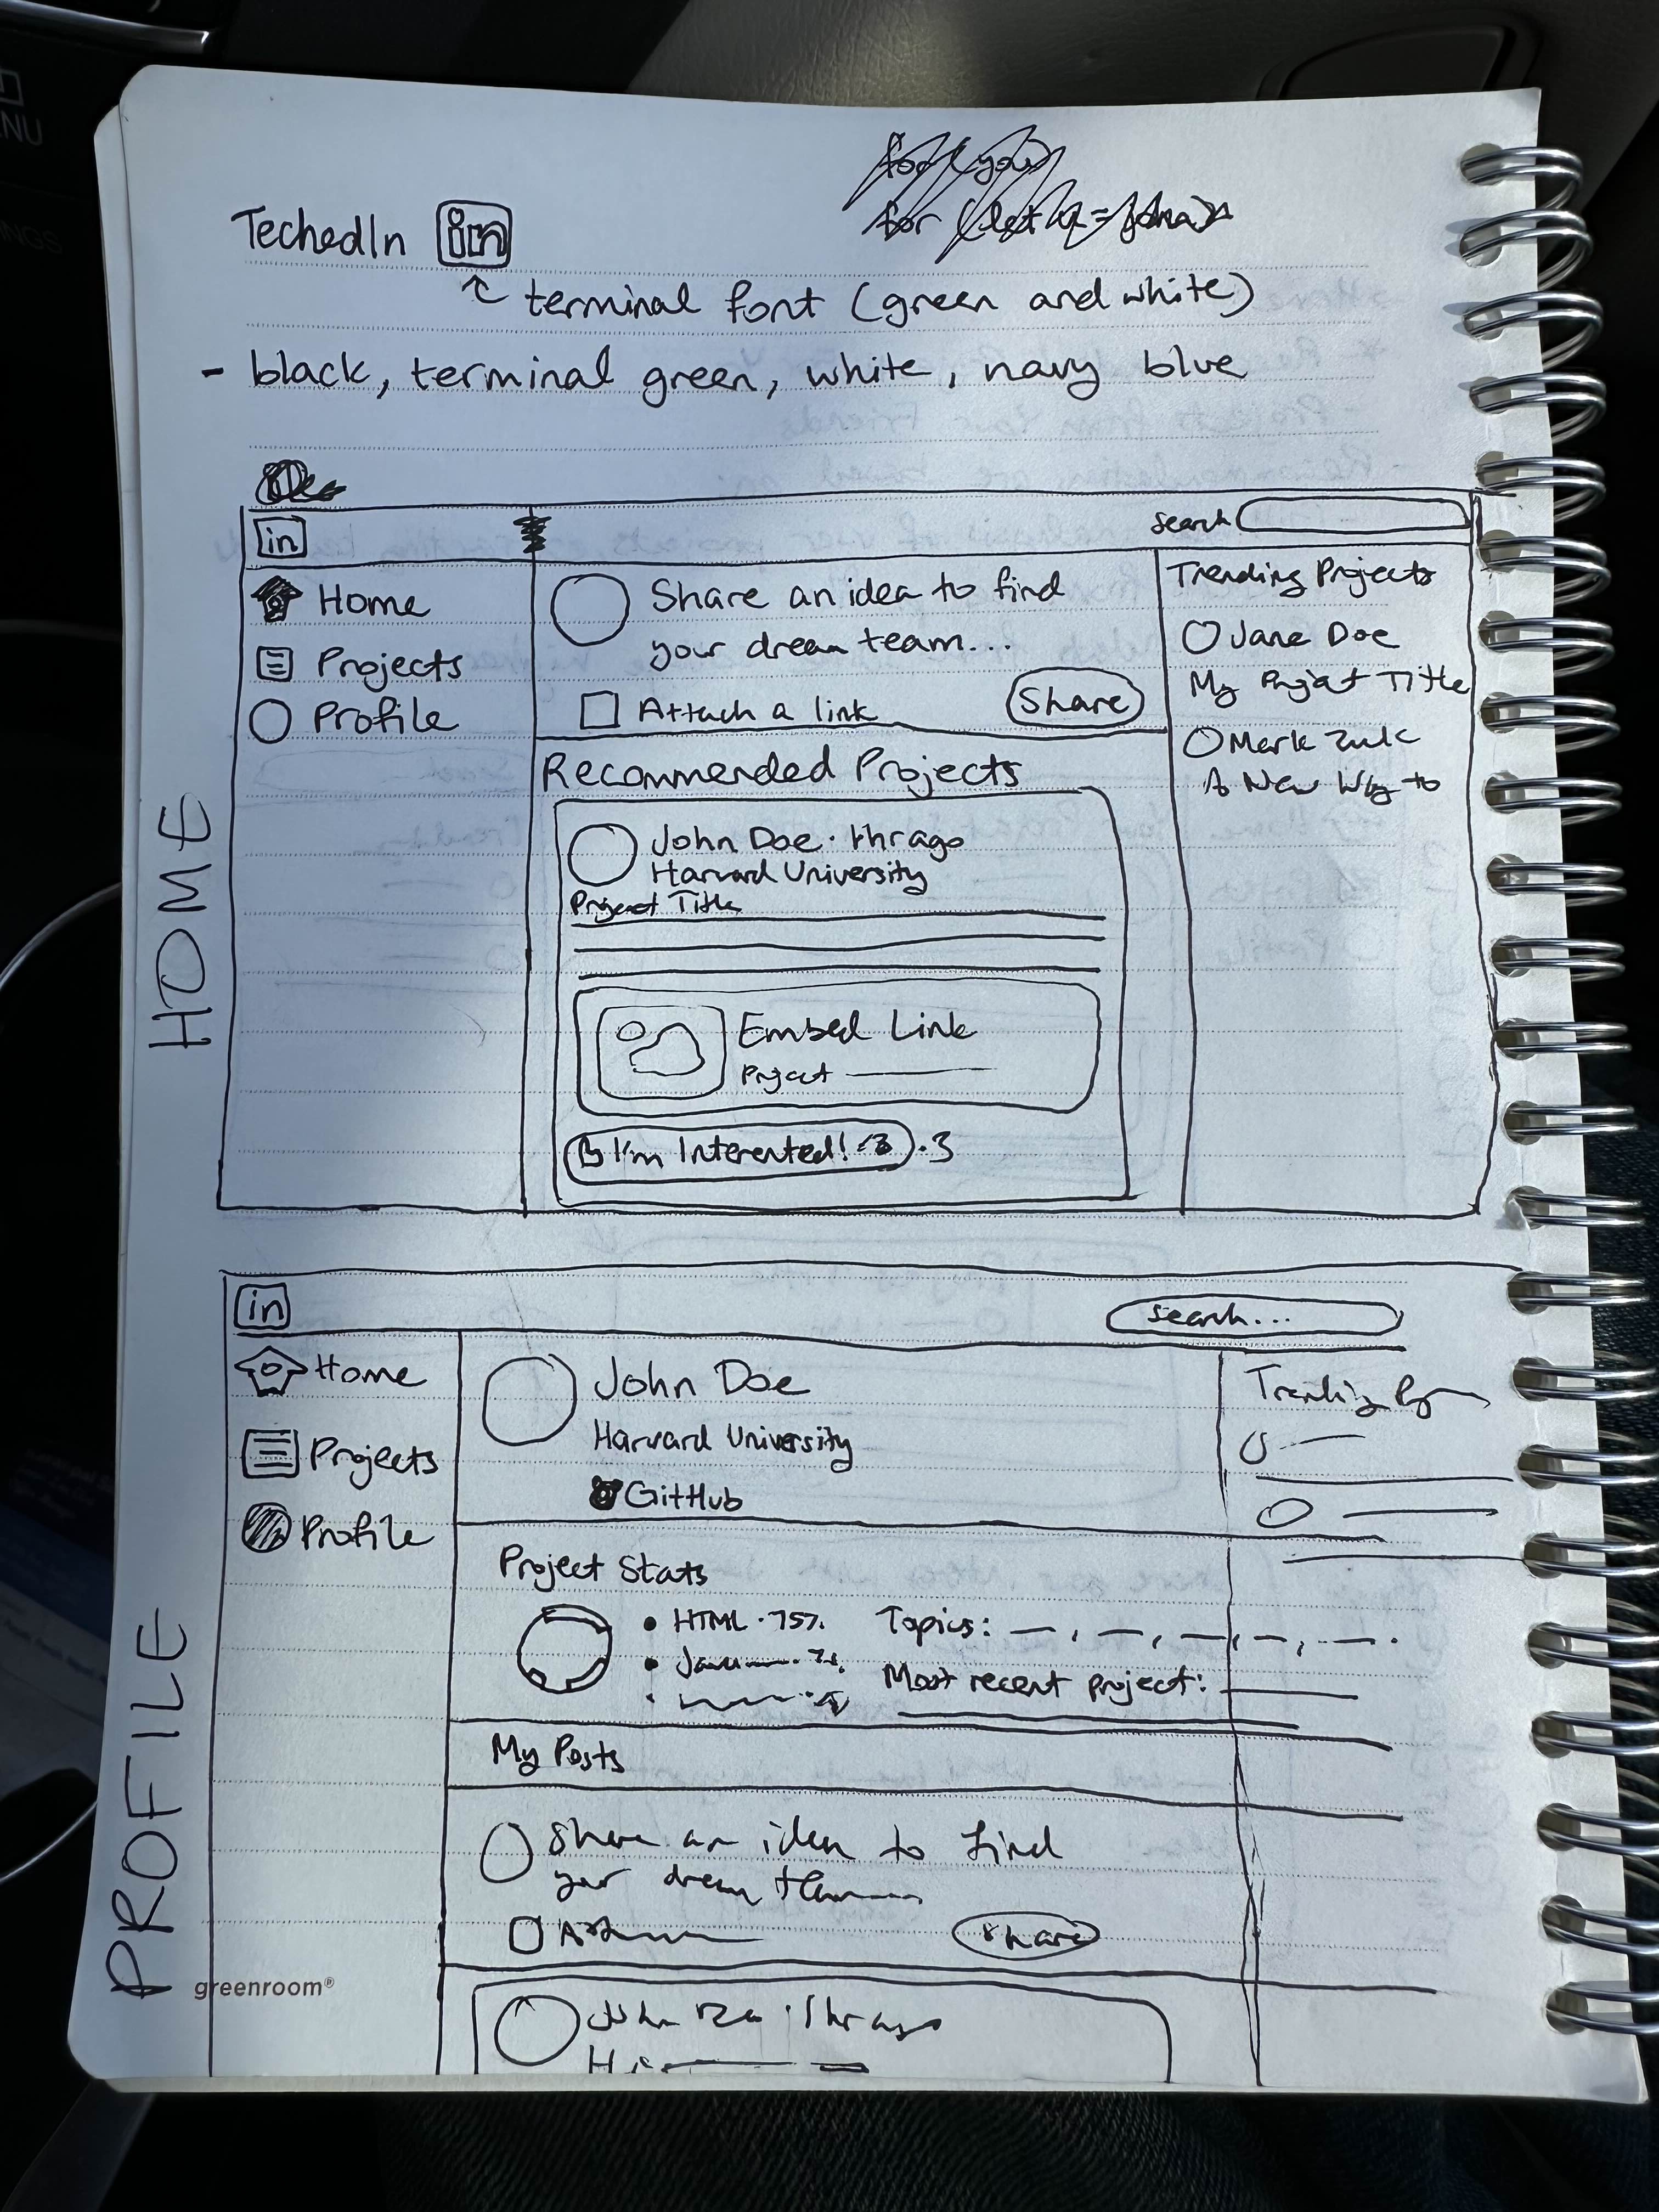 TechedIn in
terminal font (green and white)
- black, terminal green, white, navy blue
HOME
in
search
Home
Projects
Profile
Share an idea to find
your dream team...
Attach a link
Share
Trending Projects
Jane Doe
My Project Title
Mark Zuck
A New Way to
Recommended Projects
John Doe · 4hr ago
Harvard University
Project Title
Embed Link
Project
I'm Interested! · 3
PROFILE
in
search...
Home
Projects
Profile
John Doe
Harvard University
GitHub
Trending
Project Stats
• HTML · 75%
Topics:
Most recent project:
My Posts
Share an idea to find
your dream
Share
John Doe · 1hr ago
greenroom®